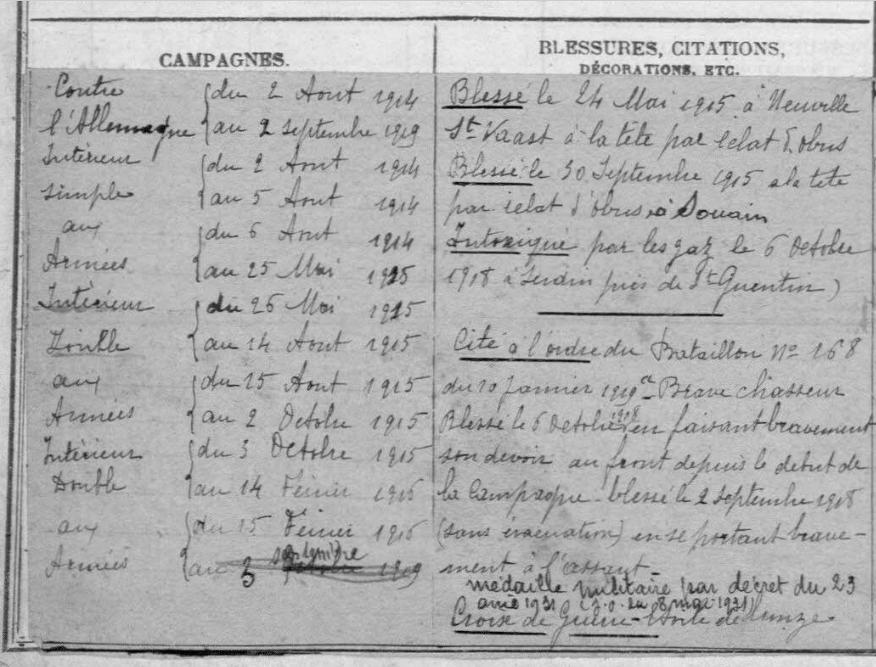 CAMPAGNES.
Contre
l'Allemagne
du 2 Aout 1914
au 2 septembre 1919
Intérieur
simple
du 2 Aout 1914
au 5 Aout 1914
aux
Armées
du 6 Aout 1914
au 25 Mai 1915
Intérieur
Double
du 26 Mai 1915
au 14 Aout 1915
aux
Armées
du 15 Aout 1915
au 2 Octobre 1915
Intérieur
Double
du 3 Octobre 1915
au 14 Février 1916
aux
Armées
du 15 Février 1916
septembre
au 1919
BLESSURES, CITATIONS,
DÉCORATIONS, ETC.
Blessé le 24 Mai 1915 à Neuville
St Vaast à la tête par éclat d'obus
Blessé le 30 Septembre 1915 a la tete
par éclat d'obus à Souain
Intoxiqué par les gaz le 6 Octobre
1918 à près de St Quentin)
Cité à l'ordre du Bataillon No 168
du 10 Janvier 1919 "Brave chasseur
Blessé le 6 Octobre 1918 en faisant bravement
son devoir au front depuis le debut de
la Campagne - blessé le 2 septembre 1918
(sans évacuation) en se portant brave-
ment à l'assaut -
médaille militaire par décret du 23
1931 (J.O. du 8 mai 1931)
Croix de Guerre - Etoile de bronze